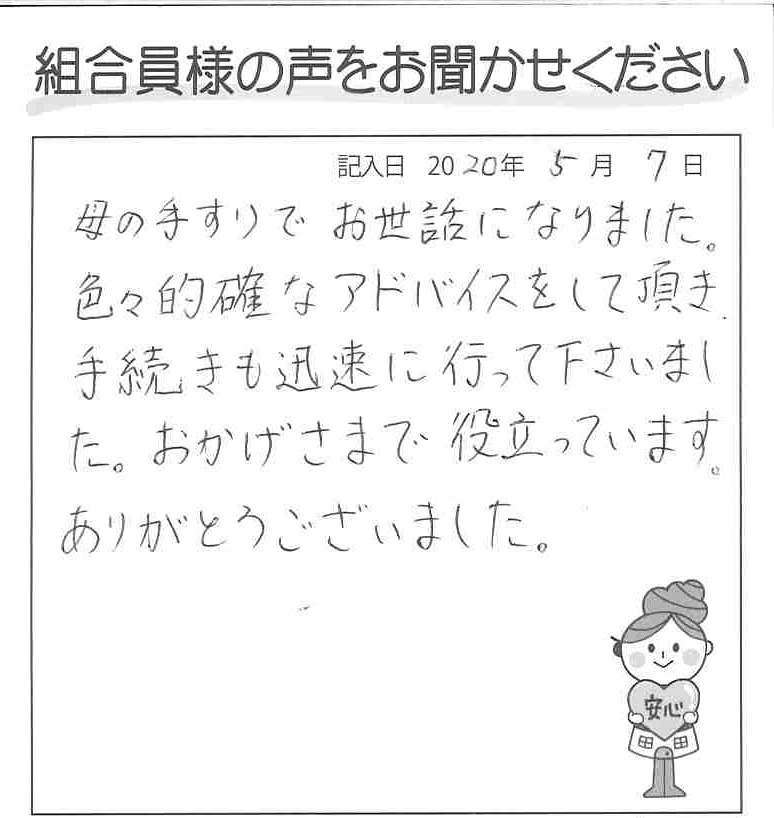 組合員様の声をお聞かせください
記入日 2020年 5月 7日
母の手すりで お世話になりました。
色々的確なアドバイスをして頂き、
手続きも迅速に行って下さいまし
た。おかげさまで 役立っています。
ありがとうございました。
安心